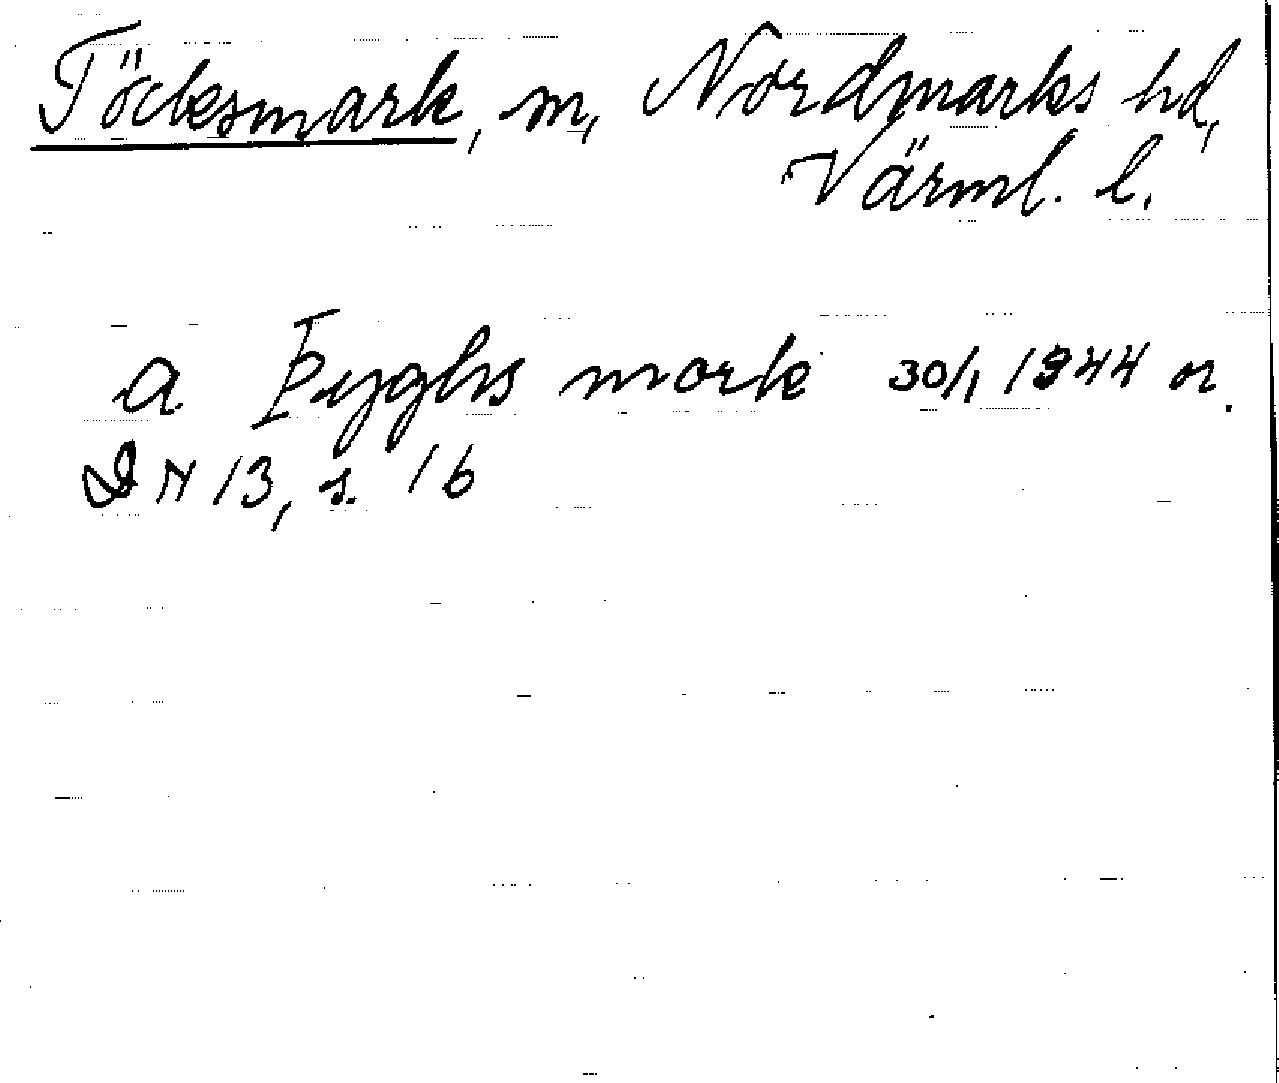 Töcksmark, sn, Nordmarks hd,
Värml. l.
a Þyghs mork 30/1 1344 or.
DN 13, s. 16